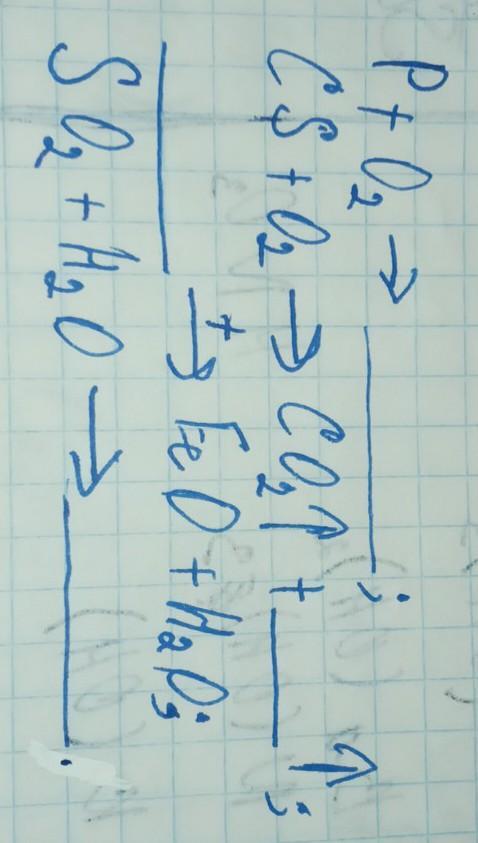 P + O₂ → ______ ;
CS + O₂ → CO₂↑ + ______ ↑ ;
______ →ᵗ FeO + H₂O;
SO₂ + H₂O → ______ .